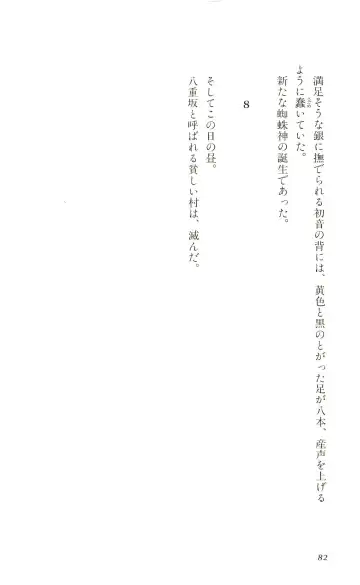 満足そうな銀に撫でられる初音の背には、黄色と黒のとがった足が八本、産声を上げる
ように蠢いていた。
新たな蜘蛛神の誕生であった。
8
そしてこの日の昼。
八重坂と呼ばれる貧しい村は、滅んだ。
82